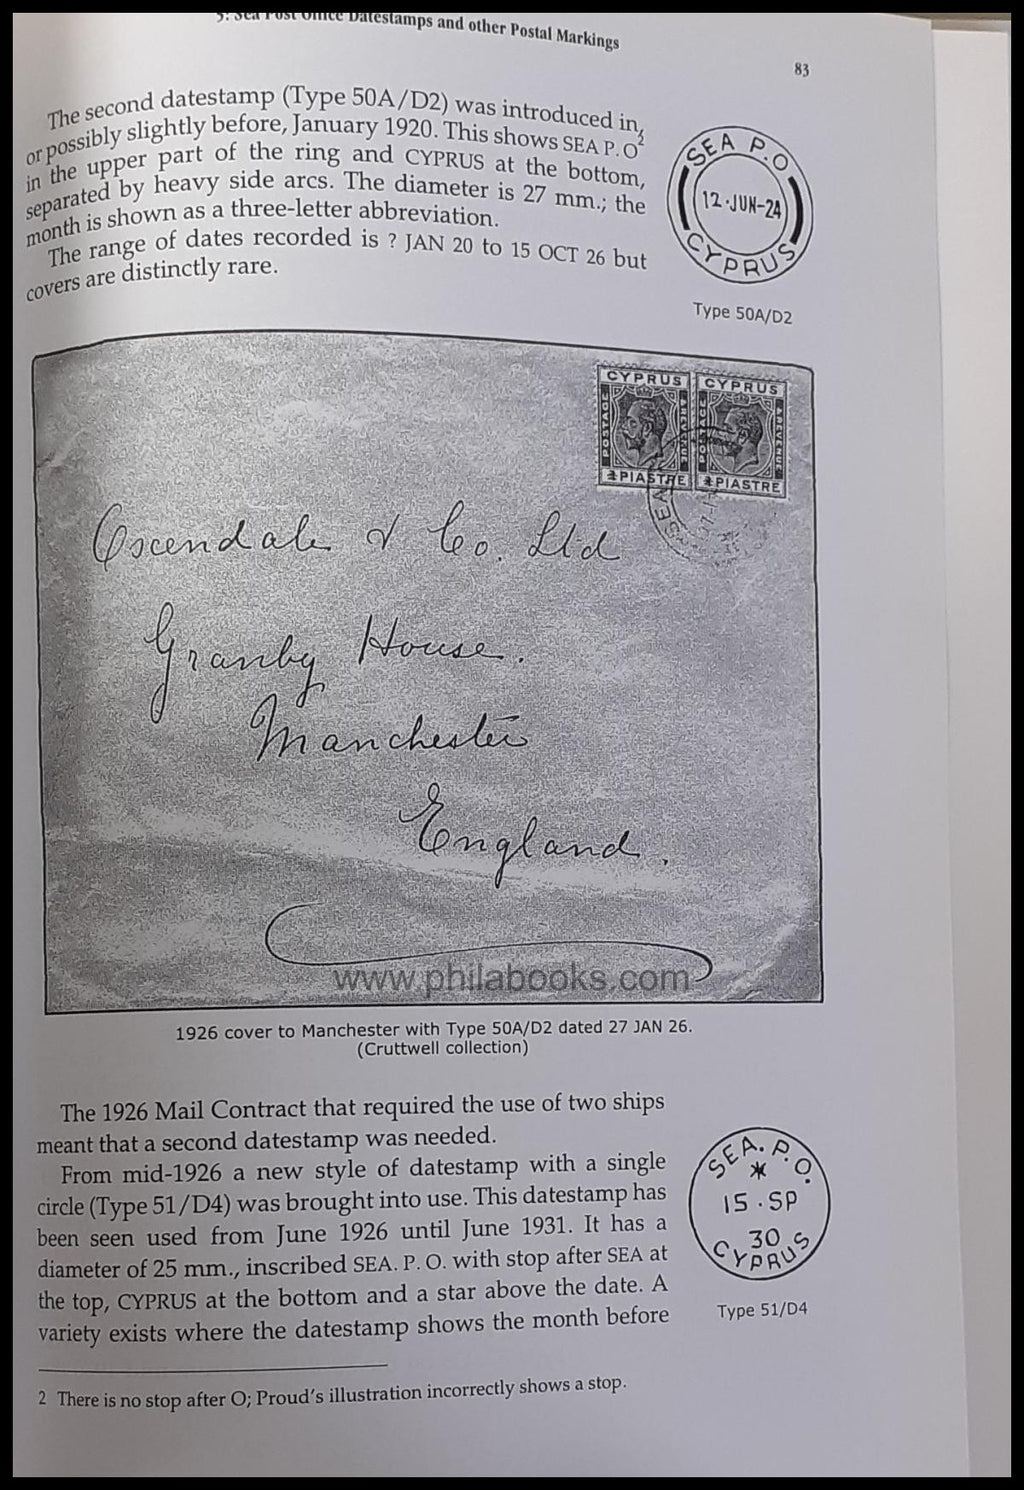 5: Sea Post Office Datestamps and other Postal Markings
83
The second datestamp (Type 50A/D2) was introduced in,
or possibly slightly before, January 1920. This shows SEA P. O²
in the upper part of the ring and CYPRUS at the bottom,
separated by heavy side arcs. The diameter is 27 mm.; the
month is shown as a three-letter abbreviation.
The range of dates recorded is ? JAN 20 to 15 OCT 26 but
covers are distinctly rare.
SEA P.O
12·JUN-24
CYPRUS
Type 50A/D2
CYPRUS CYPRUS
POSTAGE REVENUE POSTAGE REVENUE
PIASTRE PIASTRE
SEA
Oscendale & Co. Ltd
Granby House.
Manchester
England.
www.philabooks.com
1926 cover to Manchester with Type 50A/D2 dated 27 JAN 26.
(Cruttwell collection)
The 1926 Mail Contract that required the use of two ships
meant that a second datestamp was needed.
From mid-1926 a new style of datestamp with a single
circle (Type 51/D4) was brought into use. This datestamp has
been seen used from June 1926 until June 1931. It has a
diameter of 25 mm., inscribed SEA. P. O. with stop after SEA at
the top, CYPRUS at the bottom and a star above the date. A
variety exists where the datestamp shows the month before
SEA. P. O.
*
15·SP
30
CYPRUS
Type 51/D4
2 There is no stop after O; Proud's illustration incorrectly shows a stop.